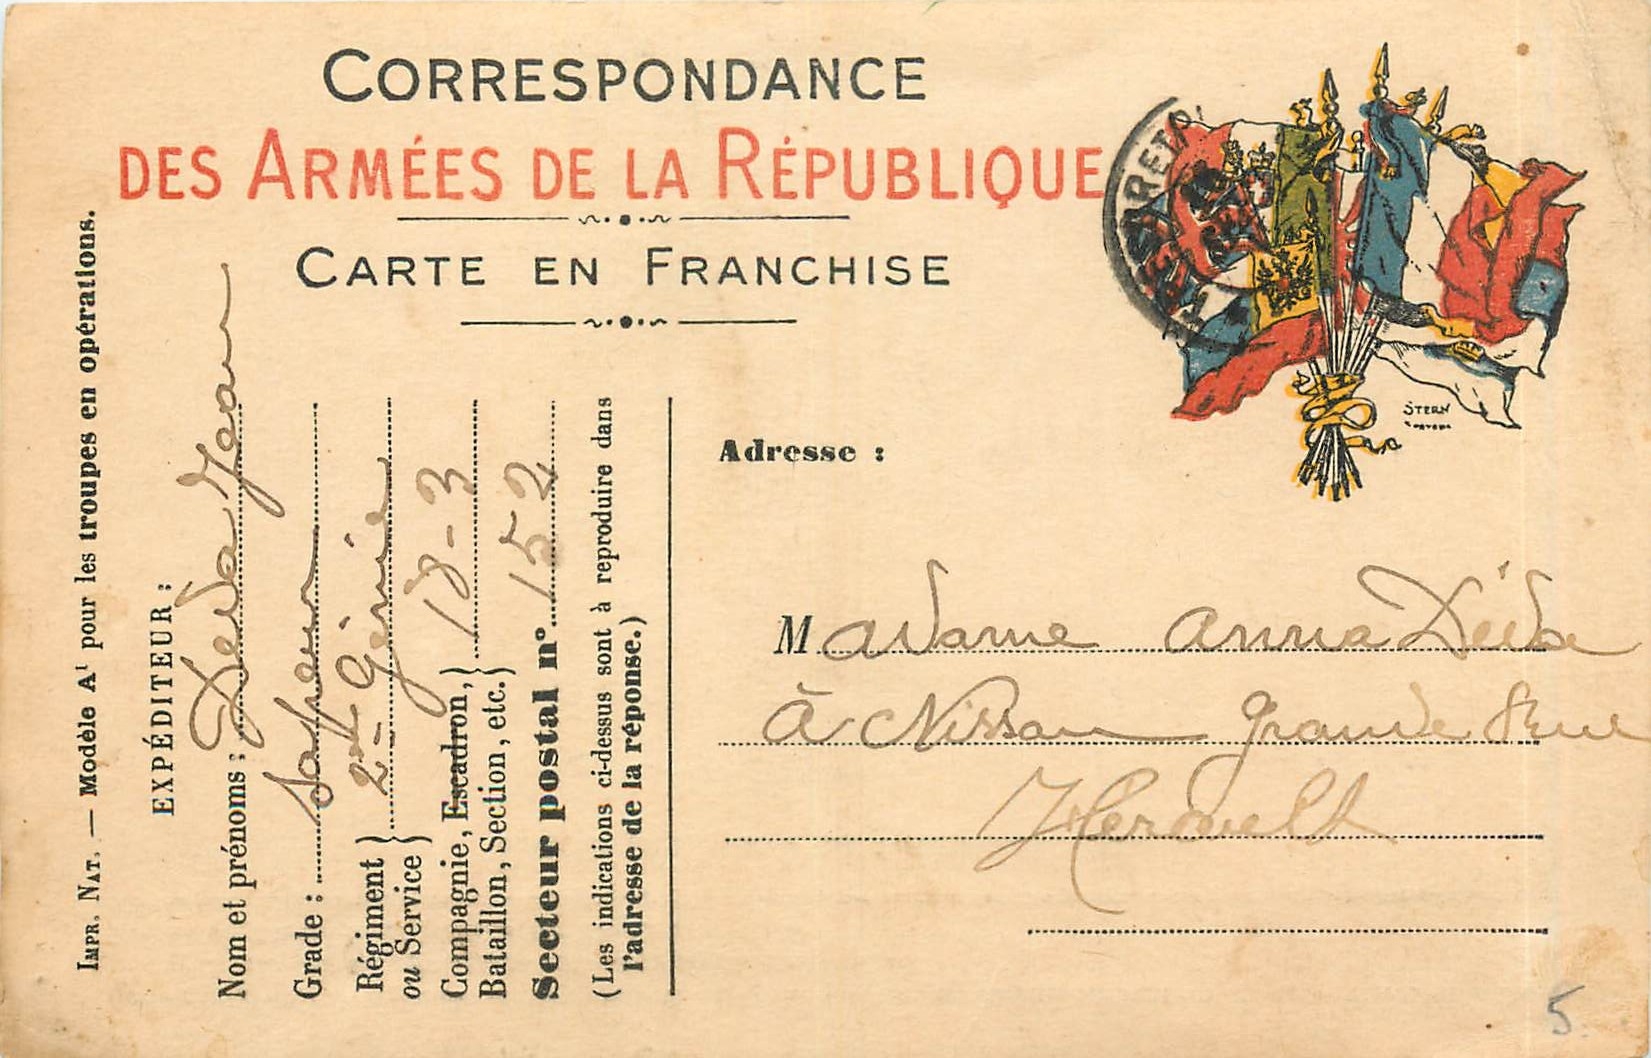 CORRESPONDANCE
DES ARMÉES DE LA RÉPUBLIQUE
CARTE EN FRANCHISE
IMPR. NAT. — Modèle A¹ pour les troupes en opérations.
EXPÉDITEUR :
Nom et prénoms : Déda Jean
Grade : Sapeur
Régiment ou Service } 2me Génie
Compagnie, Escadron, Bataillon, Section, etc. } 18-3
Secteur postal n° 152
(Les indications ci-dessus sont à reproduire dans
l'adresse de la réponse.)
STERN
Adresse :
Madame Anna Déda
à Nissan grande Rue
Herault
5